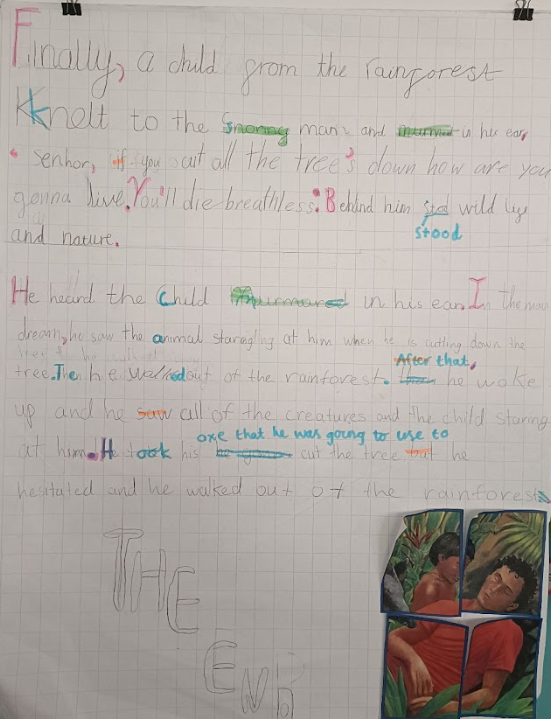 Finally, a child from the rainforest
Knelt to the snoring man and murmured in his ear,
" senhor, if you cut all the tree's down how are you
gonna live. You'll die breathless. Behind him stod wild life
stood
and nature.
He heard the child murmured in his ear. In the man
dream, he saw the animal stareing at him when he is cutting down the
tree. The he walked out of the rainforest. After that, he woke
up and he saw all of the creatures and the child staring
axe that he was going to use to
at him. He took his cut the tree but he
hesitated and he walked out of the rainforest
THE
END